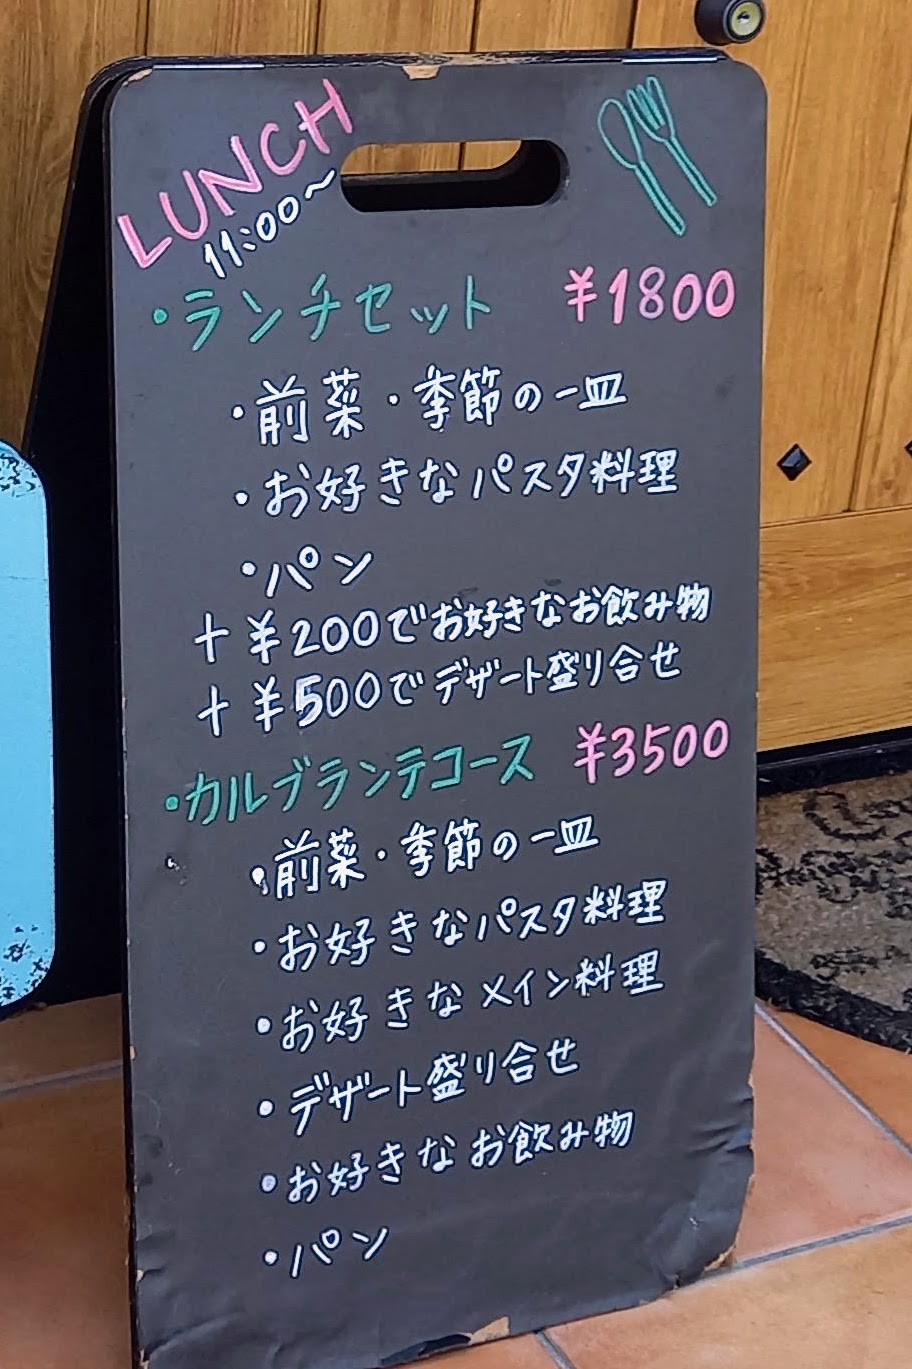 LUNCH
11:00～
・ランチセット ¥1800
・前菜・季節の一皿
・お好きなパスタ料理
・パン
＋¥200でお好きなお飲み物
＋¥500でデザート盛り合せ
・カルブランテコース ¥3500
・前菜・季節の一皿
・お好きなパスタ料理
・お好きなメイン料理
・デザート盛り合せ
・お好きなお飲み物
・パン